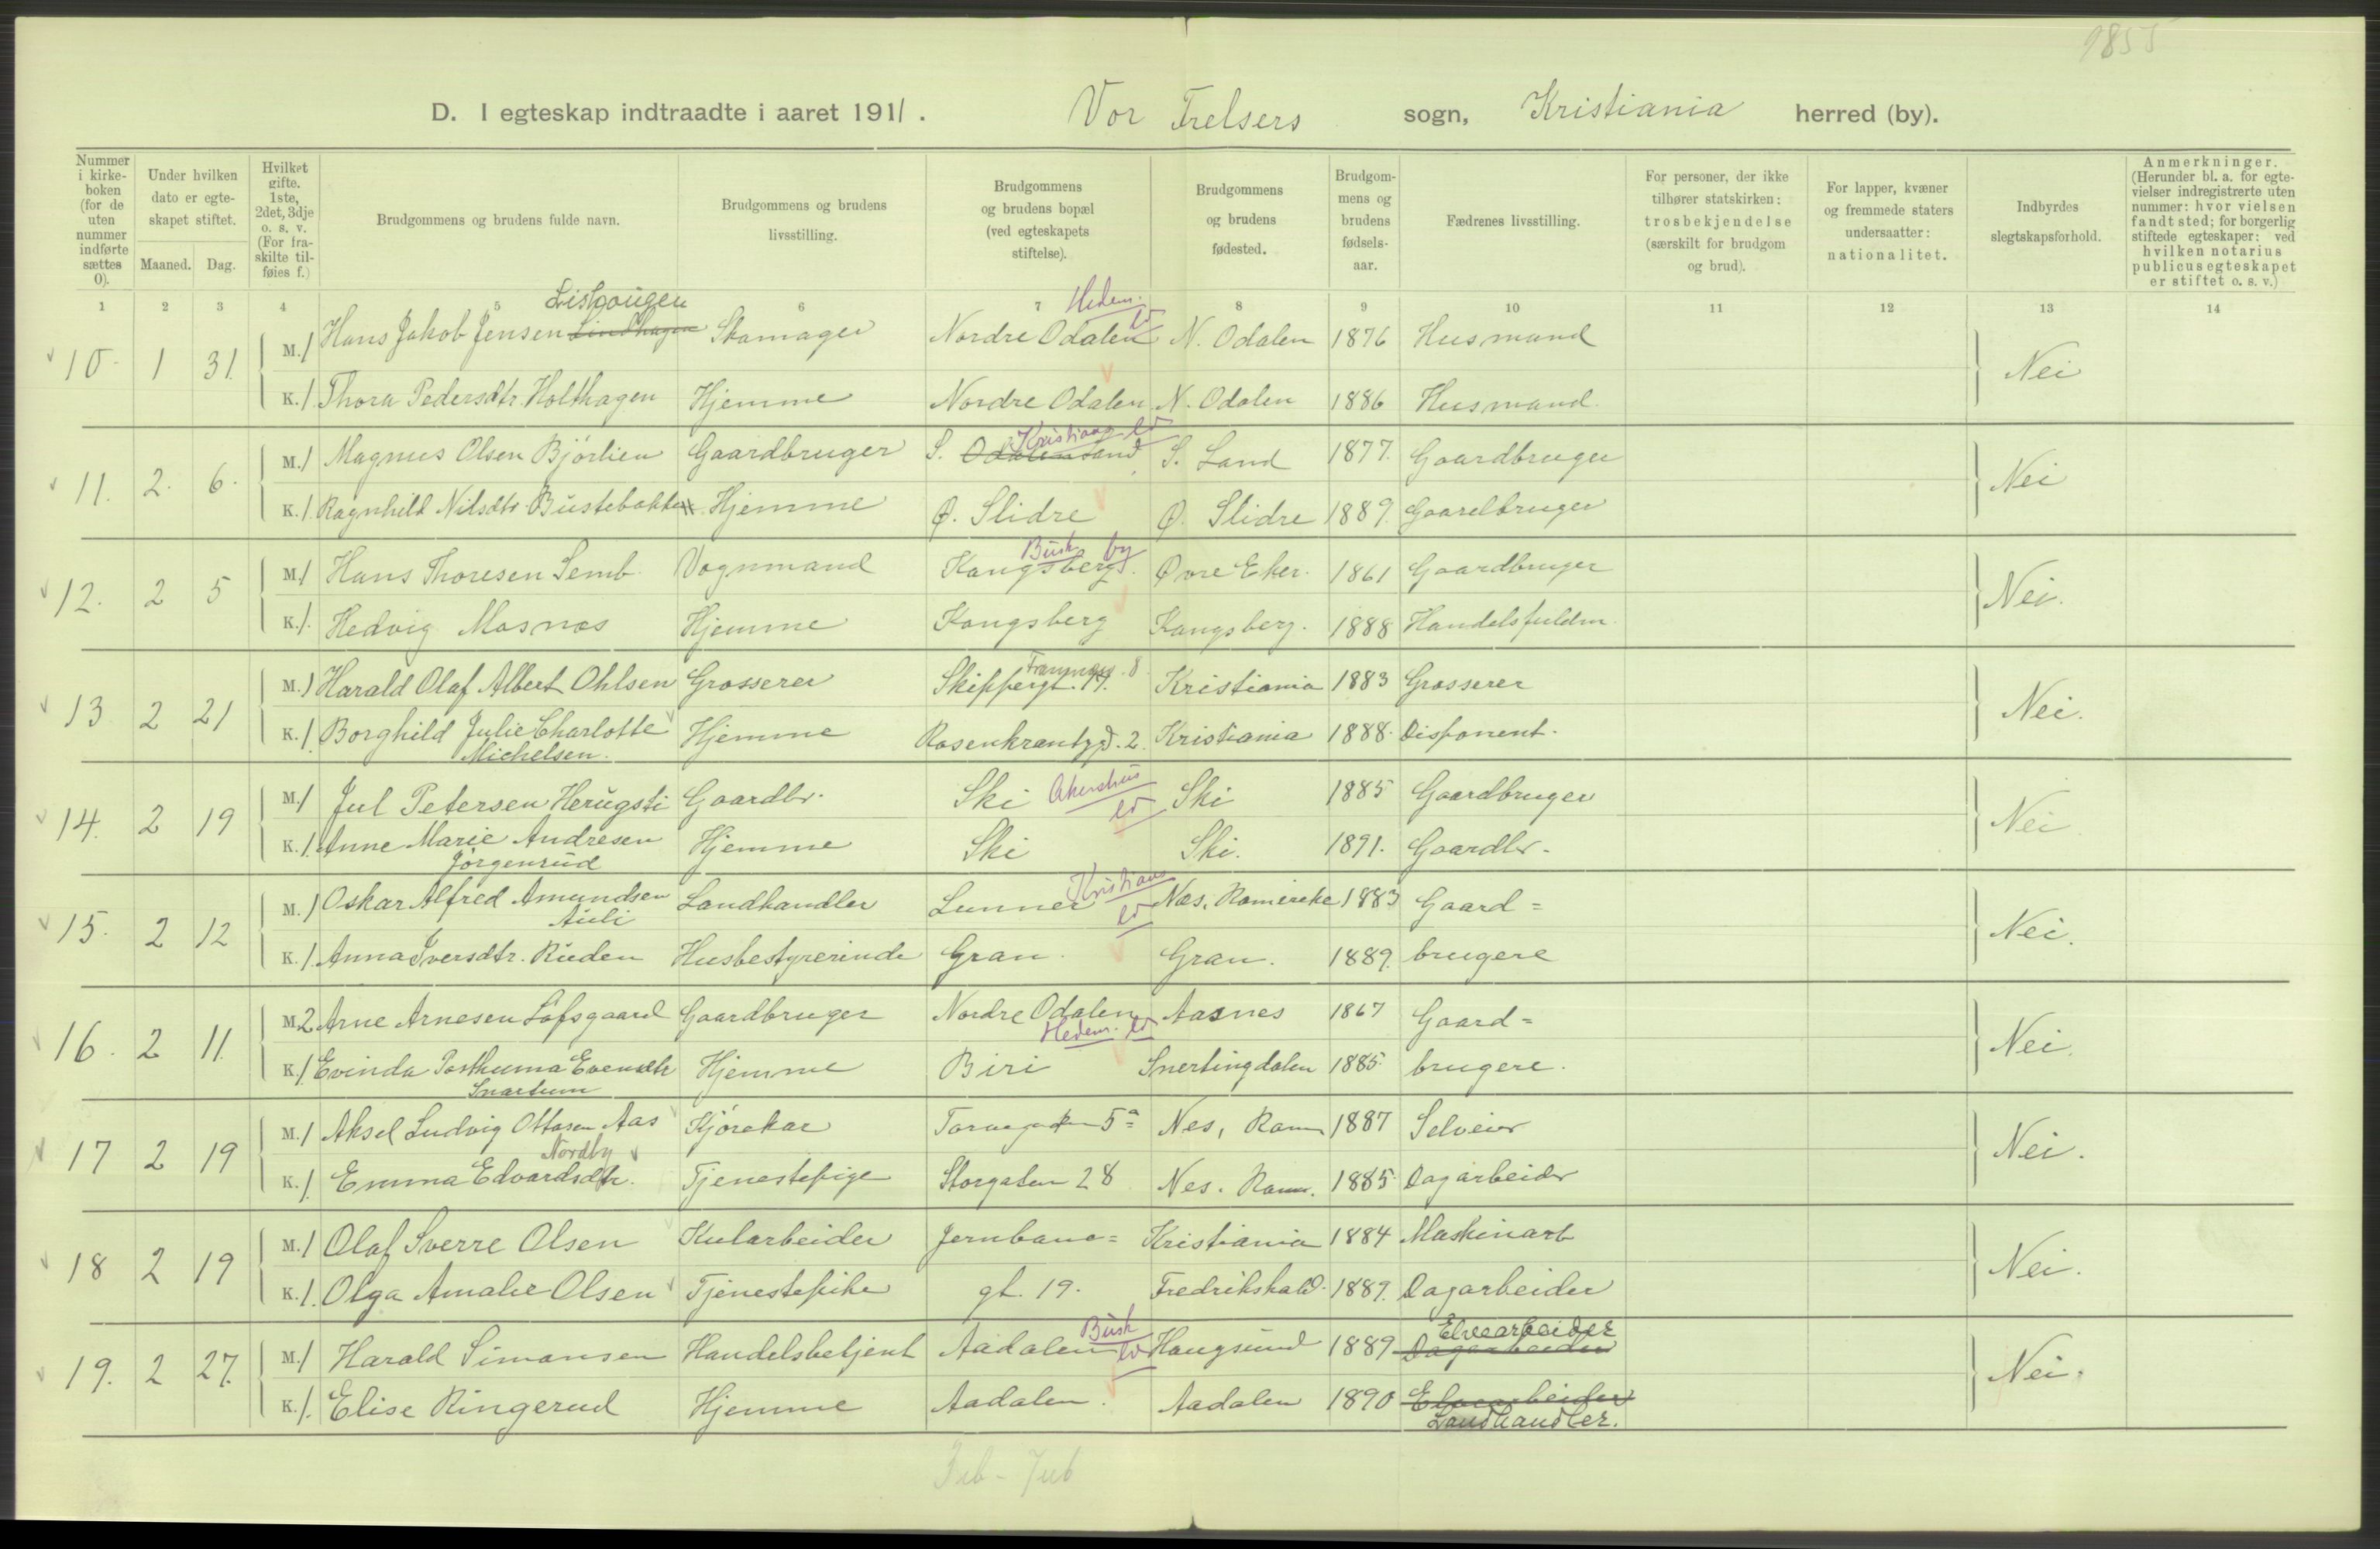 1855
D. I egteskap indtraadte i aaret 1911. Vor Frelsers sogn, Kristiania herred (by).
Nummer i kirke-boken (for de uten nummer indførte sættes 0).
Under hvilken dato er egte-skapet stiftet.
Maaned. Dag.
Hvilket gifte. 1ste, 2det, 3dje o. s. v. (For fra-skilte til-føies f.)
Brudgommens og brudens fulde navn.
Brudgommens og brudens livsstilling.
Brudgommens og brudens bopæl (ved egteskapets stiftelse).
Brudgommens og brudens fødested.
Brudgom-mens og brudens fødsels-aar.
Fædrenes livsstilling.
For personer, der ikke tilhører statskirken: trosbekjendelse (særskilt for brudgom og brud).
For lapper, kvæner og fremmede staters undersaatter: nationalitet.
Indbyrdes slegtskapsforhold.
Anmerkninger. (Herunder bl. a. for egte-vielser indregistrerte uten nummer: hvor vielsen fandt sted; for borgerlig stiftede egteskaper: ved hvilken notarius publicus egteskapet er stiftet o. s. v.)
1 2 3 4 5 6 7 8 9 10 11 12 13 14
Lishougen Hedem. ld
10 1 31. M. 1 Hans Jakob Jensen Lindhagen Skomager Nordre Odalen N. Odalen 1876 Husmand Nei
K. 1 Thora Pedersdtr. Holthagen Hjemme Nordre Odalen N. Odalen 1886 Husmand.
Kristians ld
11. 2. 6. M. 1 Magnus Olsen Bjørlien Gaardbruger S. Odalen Land S. Land 1877. Gaardbruger Nei
K. 1. Ragnhild Nilsdtr Bustebakken Hjemme Ø. Slidre Ø. Slidre 1889. Gaardbruger
Busk by
12. 2 5 M. 1 Hans Thoresen Semb. Vognmand Kongsberg. Øvre Eker. 1861 Gaardbruger Nei.
K. 1. Hedvig Mosnæs Hjemme Kongsberg Kongsberg. 1888 Handelsfuldm.
8
13 2 21 M. 1 Harald Olaf Albert Ohlsen Grosserer Skippergt. Kristiania 1883 Grosserer Nei.
K. 1. Borghild Julie Charlotte Hjemme Rosenkrantzgd. 2. Kristiania 1888. Disponent.
Michelsen.
Akershus ld
14. 2 19 M. 1 Jul Petersen Herugsti Gaardbr. Ski Ski 1885 Gaardbruger Nei
K. 1. Anne Marie Andresen Hjemme Ski Ski. 1891. Gaardbr.
Jørgenrud
Kristians ld
15. 2 12 M. 1 Oskar Alfred Amundsen Landhandler Lunner Næs, Romerike 1883 Gaard= Nei.
Auli
K. 1. Anna Iversdtr. Ruden Husbestyrerinde Gran. Gran. 1889. brugere
16. 2 11. M. 2 Arne Arnesen Løfsgaard Gaardbruger Nordre Odalen Aasnes 1867 Gaard= Nei.
Hedem. ld
K. 1 Evinda Posthuma Evensdtr Hjemme Biri Snertingdalen 1885. brugere.
Snartum
17 2 19 M. 1 Aksel Ludvig Ottosen Aas Kjørekar Torvegaden 5a Nes, Rom 1887 Selveier Nei.
Nordby
K. 1. Emma Edvardsdtr. Tjenestepige Storgaten 28 Nes. Rom. 1885. Dagarbeider
18 2 19 M. 1 Olaf Sverre Olsen Kularbeider Jernbane= Kristiania 1884 Maskinarb Nei.
K. 1. Olga Amalie Olsen Tjenestepike gt. 19. Fredrikshald. 1889. Dagarbeider
Busk ld Elvearbeider
19. 2 27. M. 1 Harald Simonsen Handelsbetjent Aadalen Haugsund 1889 Dagarbeider Nei.
K. 1. Elise Ringerud Hjemme Aadalen. Aadalen 1890 Elvearbeider
Landhandler.
Feb - Feb